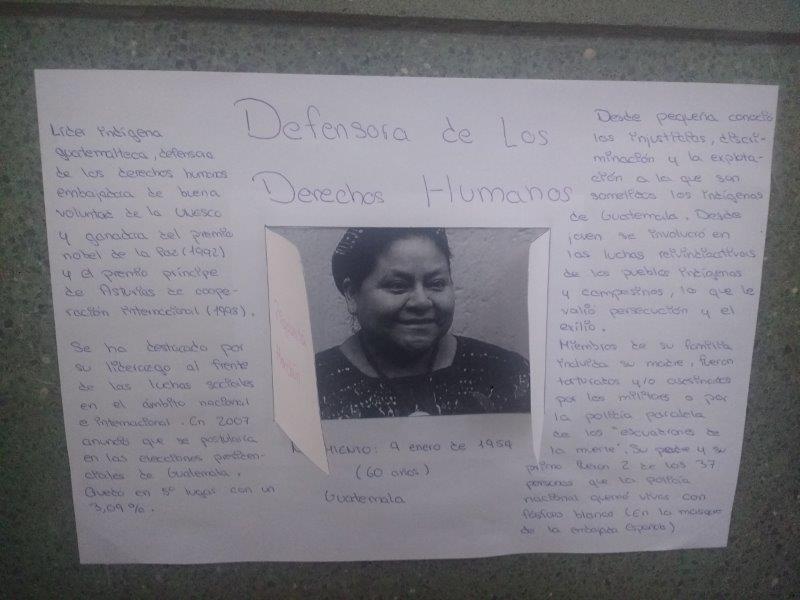 Defensora de Los
Derechos Humanos
Lider indígena
guatemalteca, defensora
de los derechos humanos
embajadora de buena
voluntad de la Unesco
y ganadora del premio
nobel de la Paz (1992)
y el premio príncipe
de Asturias de coope-
ración internacional (1998).
Se ha destacado por
su liderazgo al frente
de las luchas sociales
en el ámbito nacional
e internacional. En 2007
anunció que se postularía
en las elecciones presiden-
ciales de Guatemala.
Quedó en 5º lugar con un
3,09%.
9 enero de 1959
(60 años)
Guatemala
Desde pequeña conoció
las injusticias, discri-
minación y la explota-
ción a la que son
sometidos los indígenas
de Guatemala. Desde
joven se involucró en
las luchas reivindicativas
de los pueblos indígenas
y campesinos, lo que le
valió persecución y el
exilio.
Miembros de su familia
incluida su madre, fueron
torturados y/o asesinados
por los militares o por
la policía paralela
de los "escuadrones de
la muerte". Su padre y su
primo fueron 2 de los 37
personas que la policía
nacional quemó vivas con
fósforo blanco (En la
de la embajada Española)